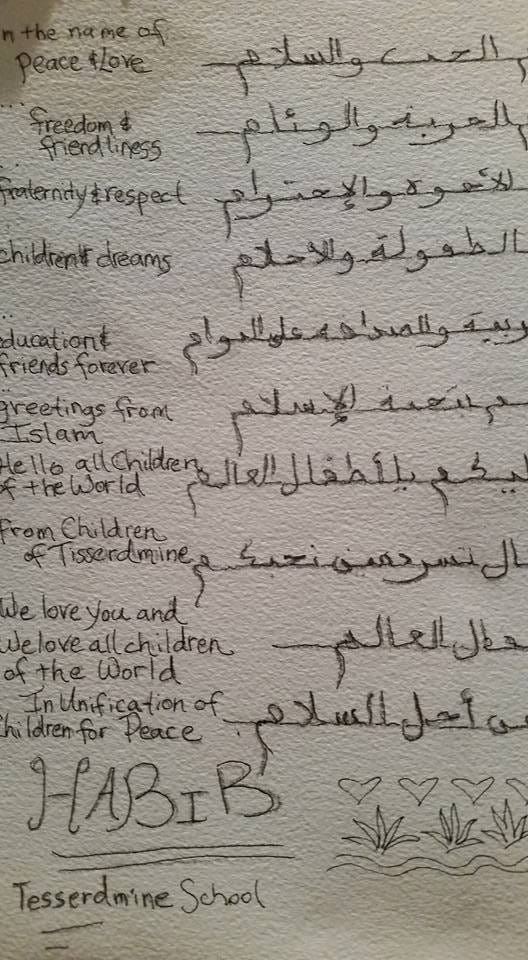 n the name of
peace & Love
الحب والسلام
...
freedom &
friendliness
الحرية والوئام
fraternity & respect
الأخوة والإحترام
children & dreams
الطفولة والاحلام
...
ducation &
friends forever
ربية والصداقة على الدوام
greetings from
Islam
م بتحية الإسلام
Hello all Children
of the World
ليكم يا أطفال العالم
from Children
of Tisserdmine
ال تسردمين نحبكم
We love you and
We love all children
of the World
طفال العالم
In Unification of
hildren for Peace
من أجل السلام
HABIB
Tesserdmine School